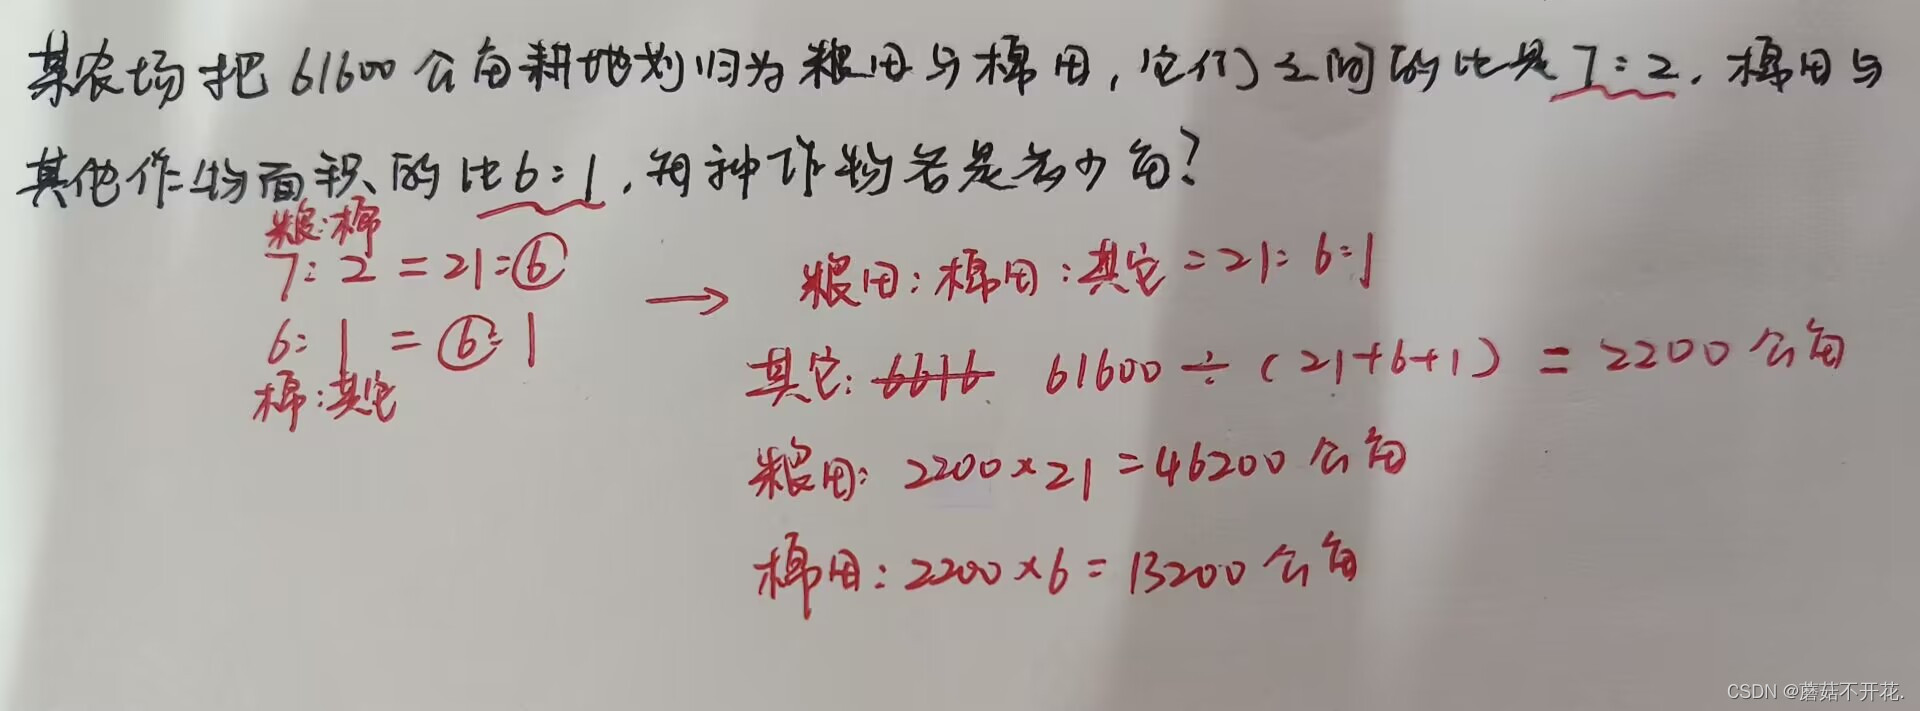 某农场把61600公亩耕地划归为粮田与棉田,它们之间的比是7:2.棉田与
其他作物面积的比6:1,每种作物各是多少亩?
粮:棉
7:2=21:6
6:1=6:1
棉:其它
→ 粮田:棉田:其它=21:6:1
其它:6616 61600÷(21+6+1)=2200公亩
粮田:2200×21=46200公亩
棉田:2200×6=13200公亩
CSDN @蘑菇不开花.